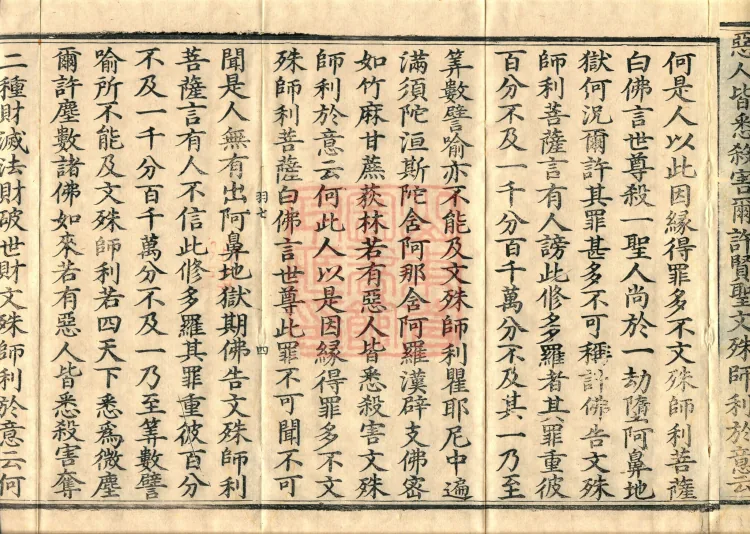 惡人皆悉殺害爾許賢聖文殊師利於意云
何是人以此因緣得罪多不文殊師利菩薩
白佛言世尊殺一聖人尚於一劫墮阿鼻地
獄何況爾許其罪甚多不可稱計佛告文殊
師利菩薩言有人謗此修多羅者其罪重彼
百分不及一千分百千萬分不及其一乃至
筭數譬喻亦不能及文殊師利瞿耶尼中遍
滿須陀洹斯陀舍阿那舍阿羅漢辟支佛密
如竹麻甘蔗荻林若有惡人皆悉殺害文殊
師利於意云何此人以是因緣得罪多不文
殊師利菩薩白佛言世尊此罪不可聞不可
羽七 四
聞是人無有出阿鼻地獄期佛告文殊師利
菩薩言有人不信此修多羅其罪重彼百分
不及一千分百千萬分不及一乃至筭數譬
喻所不能及文殊師利若四天下悉爲微塵
爾許塵數諸佛如來若有惡人皆悉殺害奪
二種財滅法財破世財文殊師利於意云何